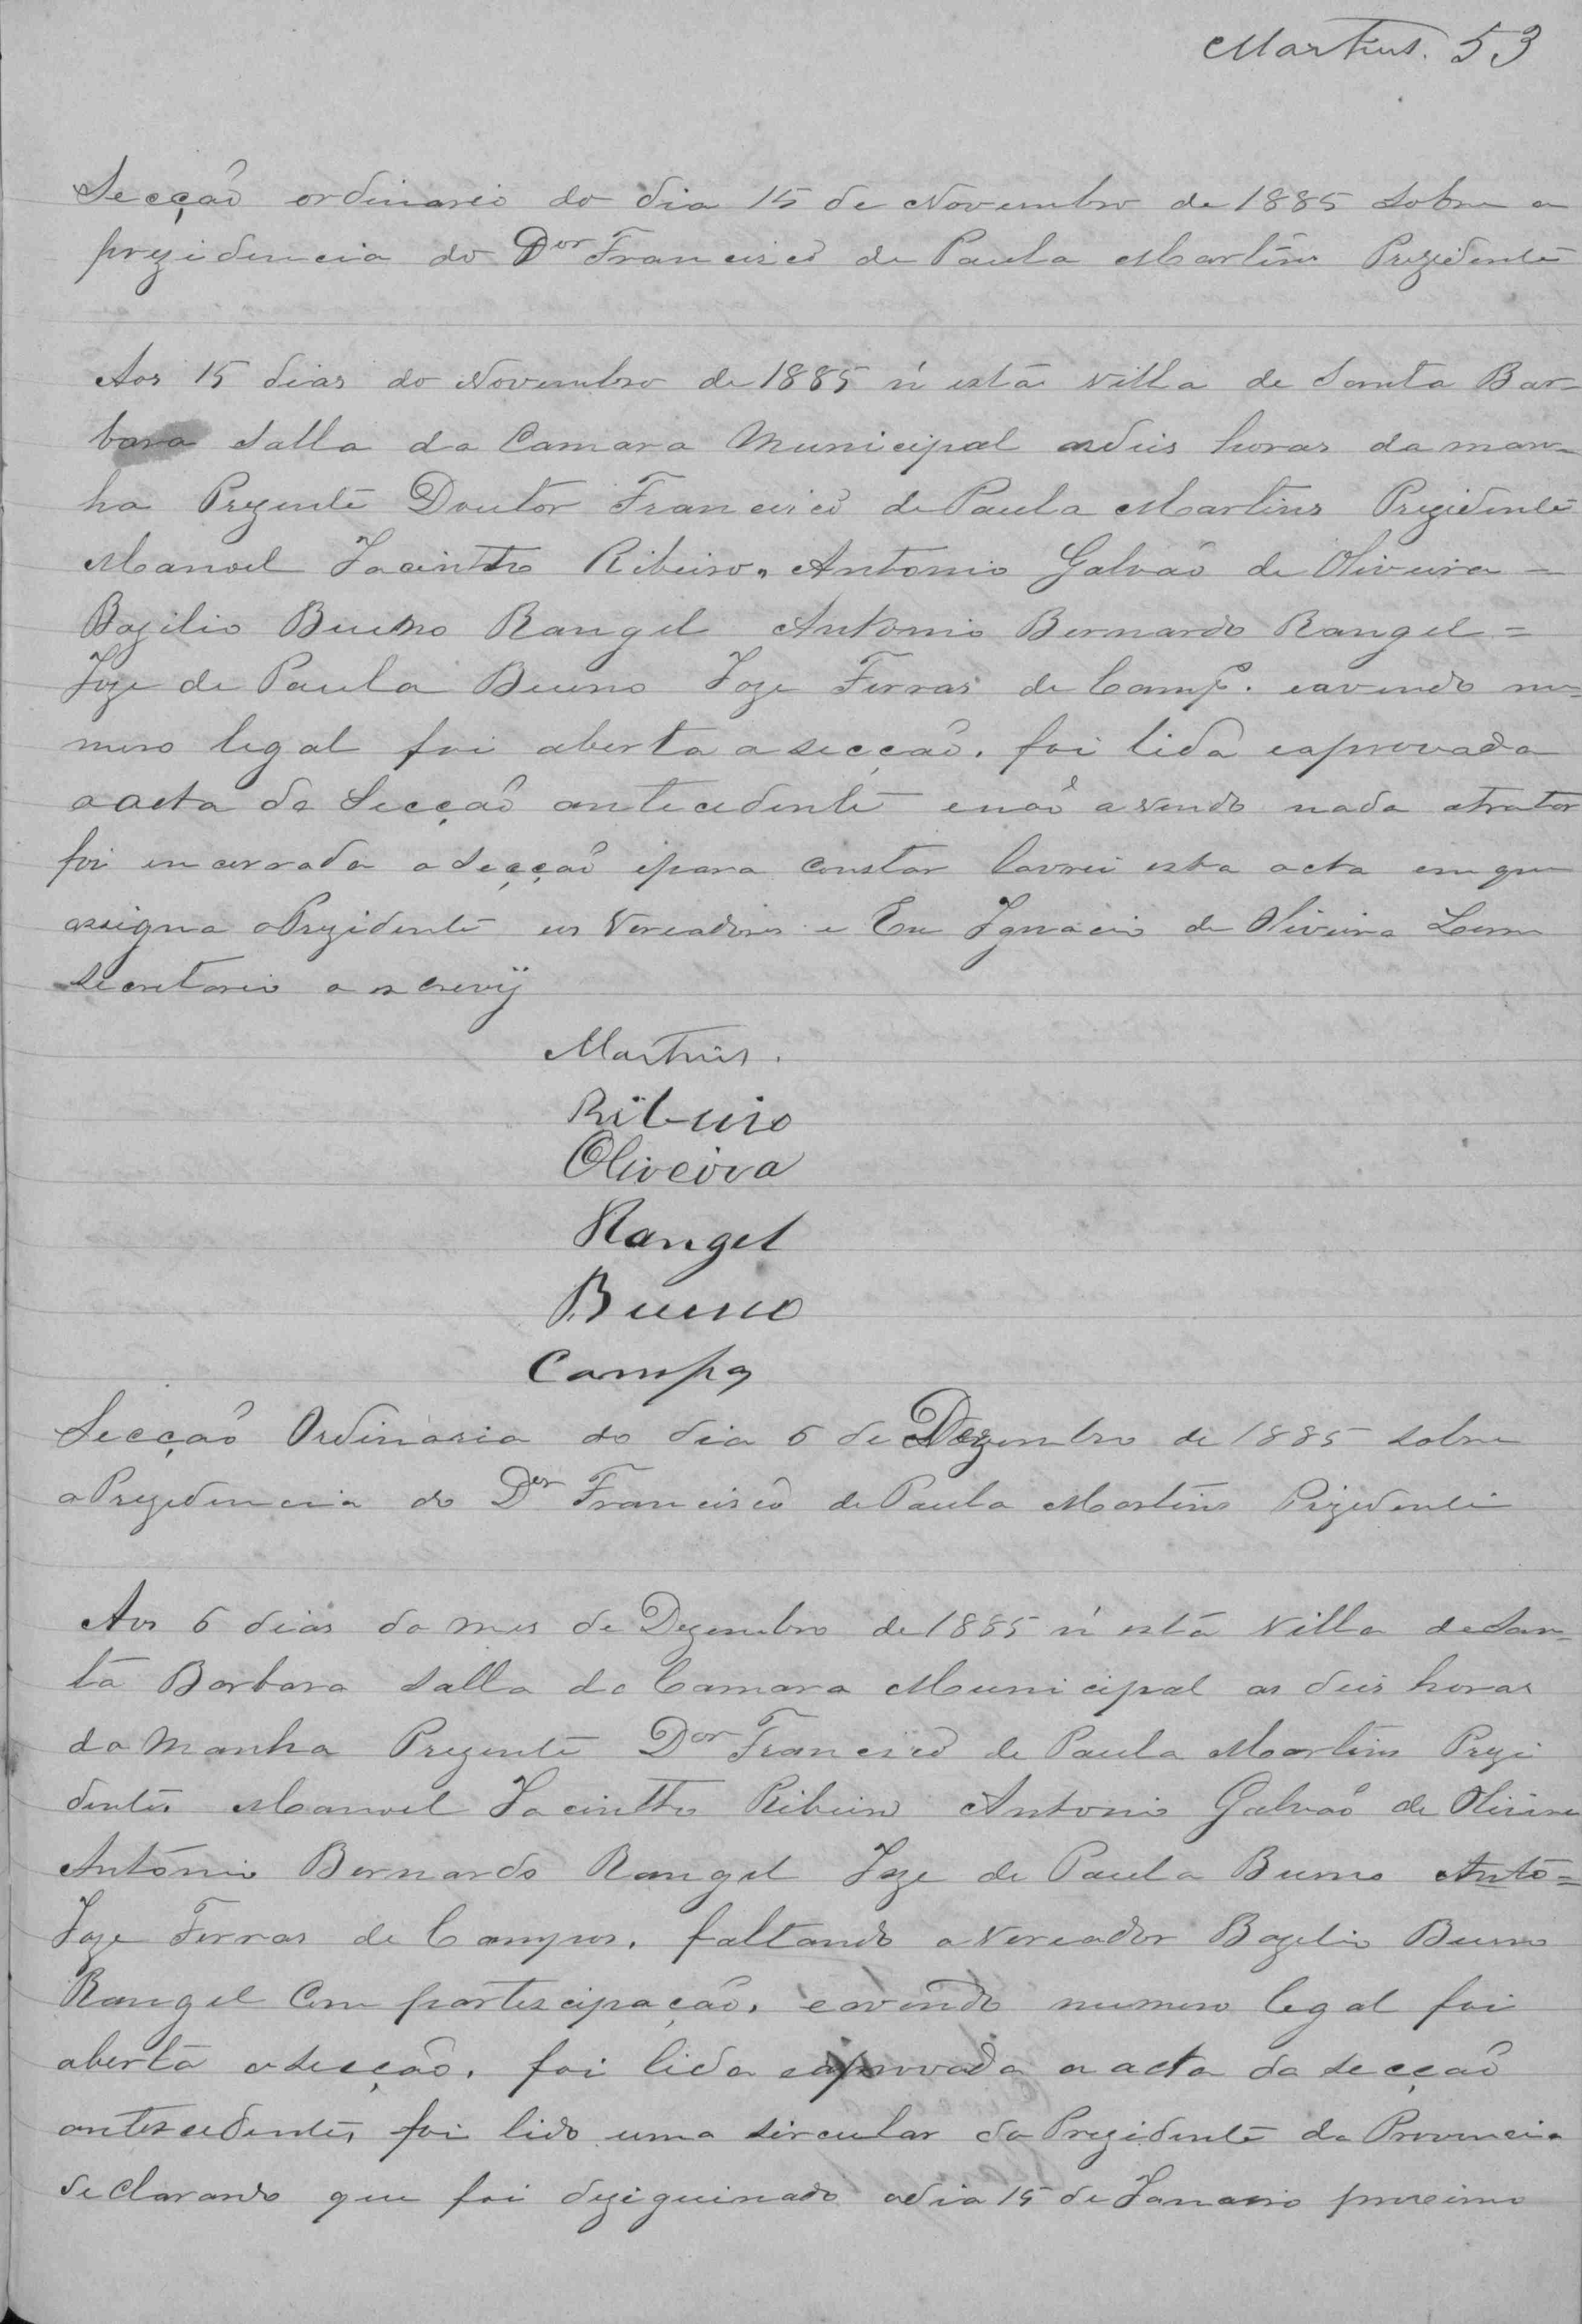 Martins. 53
Secção ordinario do dia 15 de Novembro de 1885 sobre a
prezidencia do Dor Francisco de Paula Martins Prezidente
Aos 15 dias do Novembro de 1885 n'esta villa de Santa Bar-
bara salla da Camara Municipal asdeis horas da man-
ha Prezente Doutor Francisco de Paula Martins Prezidente
Manoel Jacintho Ribeiro, Antonio Galvão de Oliveira =
Bazilio Bueno Rangel Antonio Bernardo Rangel =
Joze de Paula Bueno Joze Ferras de Campos. eavendo nu=
mero legal foi aberta a secção. foi lida eaprovada
a acta da Secção antecedente enaõ avendo nada atratar
foi encerrada a secção epara constar lavrei esta acta em que
assigna o Prezidente eos Vereadores e Eu Ignacio de Oliveira Leme
Secretario o escrevÿ
Martins.
Ribeiro
Oliveira
Rangel
Bueno
Campos
Secção Ordinaria do dia 6 de Dezembro de 1885 sobre
a Prezidencia do Dor Francisco de Paula Martins Prezidente
Aos 6 dias do mes de Dezembro de 1885 n'esta Villa de San=
ta Barbara salla da Camara Municipal as deis horas
da Manha Prezente Dor Francisco de Paula Martins Prezi
dente. Manoel Jacintho Ribeiro Antonio Galvão de Oliveira
Antonio Bernardo Rangel Joze de Paula Bueno Anto=
Joze Ferras de Campos. faltando o Vereador Bazilio Bueno
Rangel Com partescipação. eavendo numero legal foi
aberta a secção. foi lida eaprovada a acta da secção
antescedente, foi lido uma sircular do Prezidente da Provincia
declarando que foi deziguinado odia 15 de Janario proximo